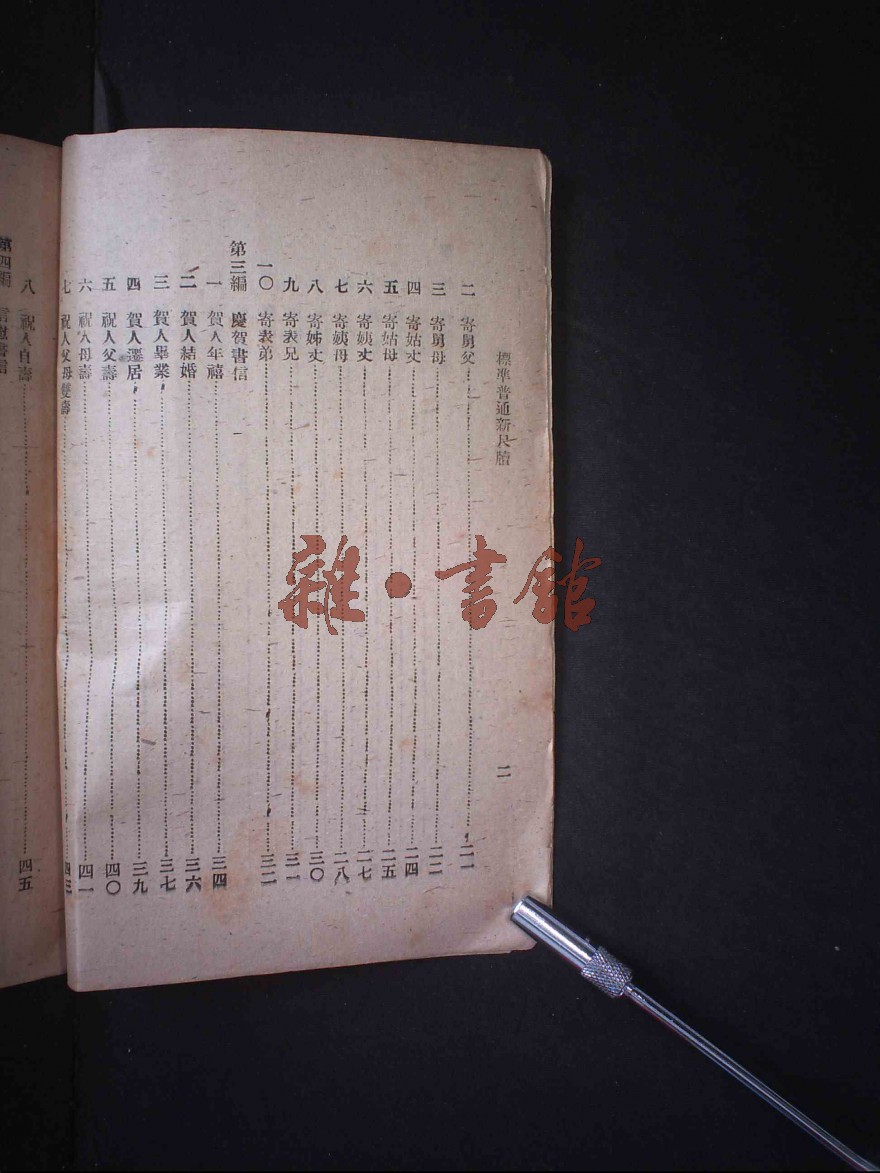 標準普通新尺牘
二
二 寄舅父 二一
三 寄舅母 二二
四 寄姑丈 二四
五 寄姑母 二五
六 寄姨丈 二七
七 寄姨母 二八
八 寄姊丈 三〇
九 寄表兄 三一
一〇 寄表弟 三二
第三編 慶賀書信
一 賀人年禧 三四
二 賀人結婚 三六
三 賀人畢業 三七
四 賀人遷居 三九
五 祝人父壽 四〇
六 祝人母壽 四一
七 祝人父母雙壽 四三
八 祝人自壽 四五
第四編 書信
雜·書館